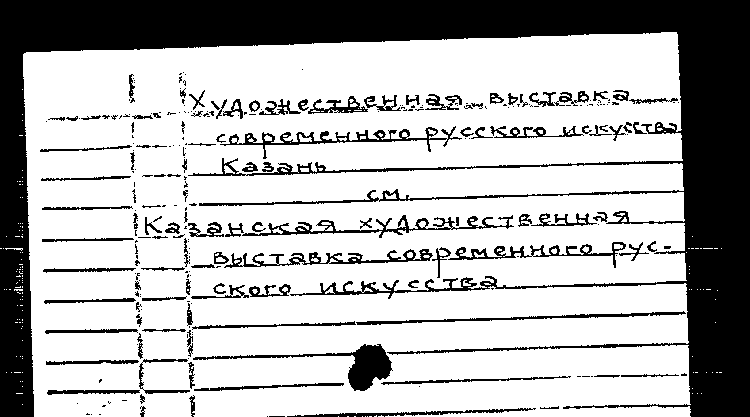 Художественная выставка
современного русского искусства
Казань
см.
Казанская художественная
выставка современного рус-
ского искусства.